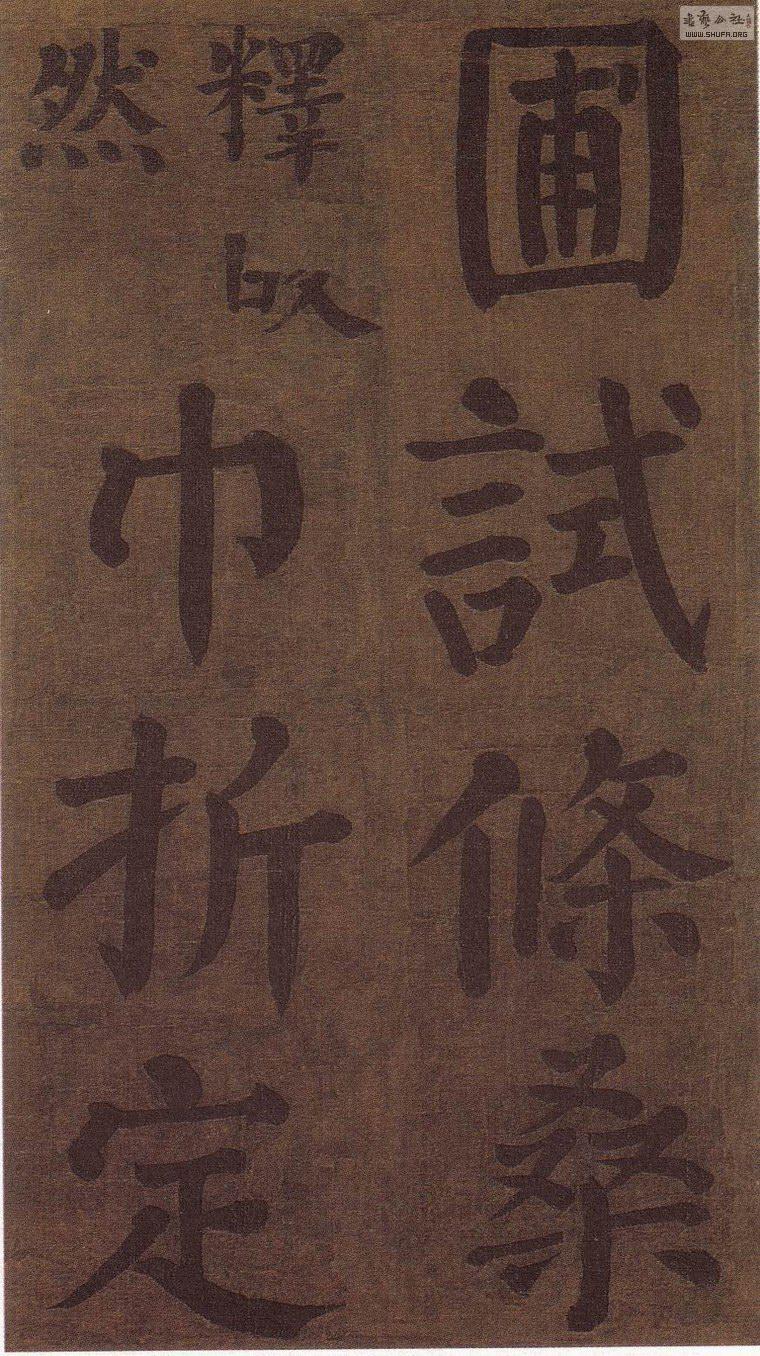 圃試條桑
釋
然
巾折定
书艺公社
WWW.SHUFA.ORG